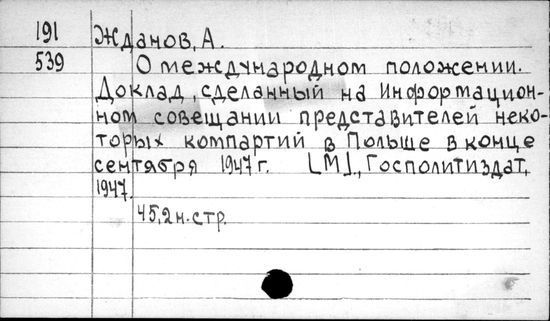 191 Жданов, А.
539 О международном положении.
Доклад, сделанный на Информацион-
ном совещании представителей неко-
торых компартий в Польше в конце
сентября 1947 г. [М]., Госполитиздат,
1947.
45,2 н. стр.